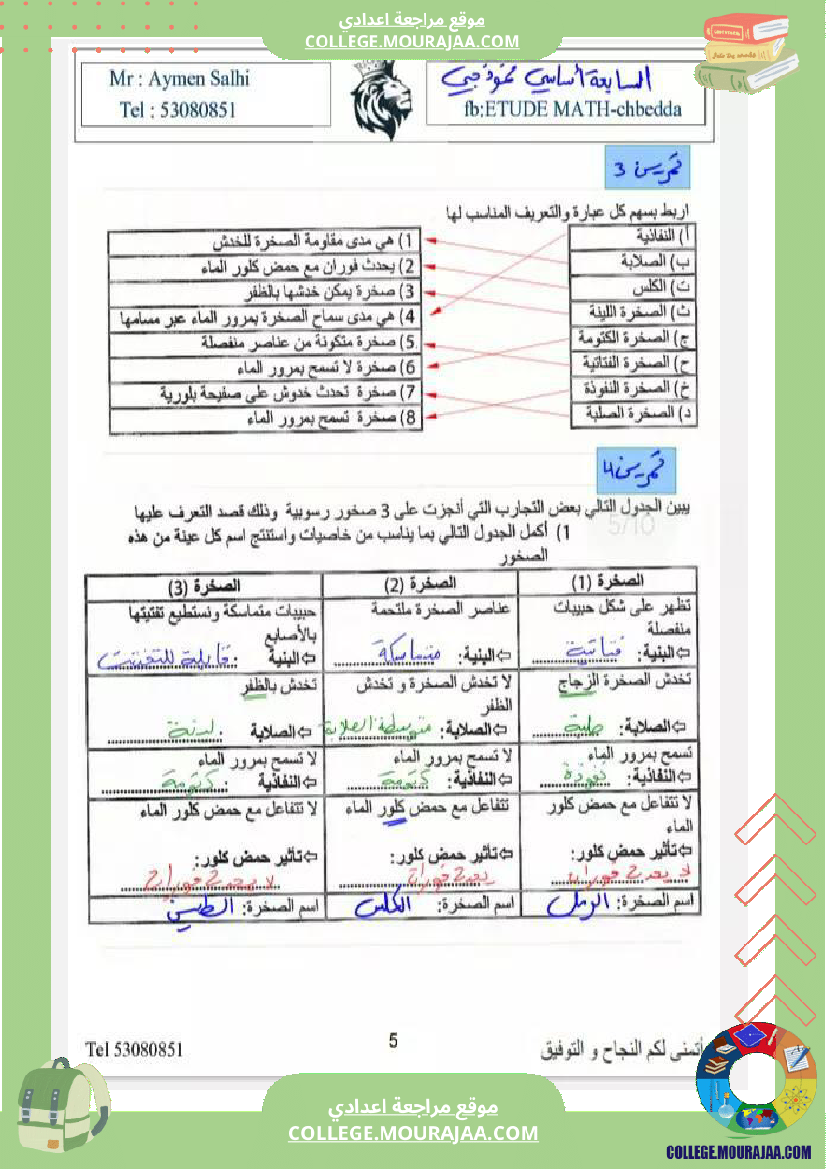 موقع مراجعة اعدادي
COLLEGE.MOURAJAA.COM
Mr : Aymen Salhi
Tel : 53080851
السابعة أساسي نموذجي
fb:ETUDE MATH-chbedda
تمرين 3
اربط بسهم كل عبارة والتعريف المناسب لها
أ) النفاذية
ب) الصلابة
ت) الكلس
ث) الصخرة اللينة
ج) الصخرة الكتومة
ح) الصخرة الفتاتية
خ) الصخرة النفوذة
د) الصخرة الصلبة
1) هي مدى مقاومة الصخرة للخدش
2) يحدث فوران مع حمض كلور الماء
3) صخرة يمكن خدشها بالظفر
4) هي مدى سماح الصخرة بمرور الماء عبر مسامها
5) صخرة متكونة من عناصر منفصلة
6) صخرة لا تسمح بمرور الماء
7) صخرة تحدث خدوش على صفيحة بلورية
8) صخرة تسمح بمرور الماء
تمرين 4
يبين الجدول التالي بعض التجارب التي أنجزت على 3 صخور رسوبية وذلك قصد التعرف عليها
5/10
1) أكمل الجدول التالي بما يناسب من خاصيات واستنتج اسم كل عينة من هذه
الصخور
الصخرة (1) الصخرة (2) الصخرة (3)
تظهر على شكل حبيبات
منفصلة
⇦البنية: فتاتية
عناصر الصخرة ملتحمة
⇦البنية: متماسكة
حبيبات متماسكة ونستطيع تفتيتها
بالأصابع
⇦البنية : قابلة للتفتيت
تخدش الصخرة الزجاج
⇦الصلابة: صلبة
لا تخدش الصخرة و تخدش
الظفر
⇦الصلابة: متوسطة الصلابة
تخدش بالظفر
⇦الصلابة : لدنة
تسمح بمرور الماء
⇦النفاذية: نفوذة
لا تسمح بمرور الماء
⇦النفاذية: كتومة
لا تسمح بمرور الماء
⇦النفاذية : كتومة
لا تتفاعل مع حمض كلور
الماء
⇦تأثير حمض كلور:
لا يحدث فوران
تتفاعل مع حمض كلور الماء
⇦تأثير حمض كلور:
يحدث فوران
لا تتفاعل مع حمض كلور الماء
⇦تأثير حمض كلور:
لا يحدث فوران
اسم الصخرة: الرمل
اسم الصخرة: الكلس
اسم الصخرة: الطين
Tel 53080851
5
أتمنى لكم النجاح و التوفيق
موقع مراجعة اعدادي
COLLEGE.MOURAJAA.COM
COLLEGE.MOURAJAA.COM